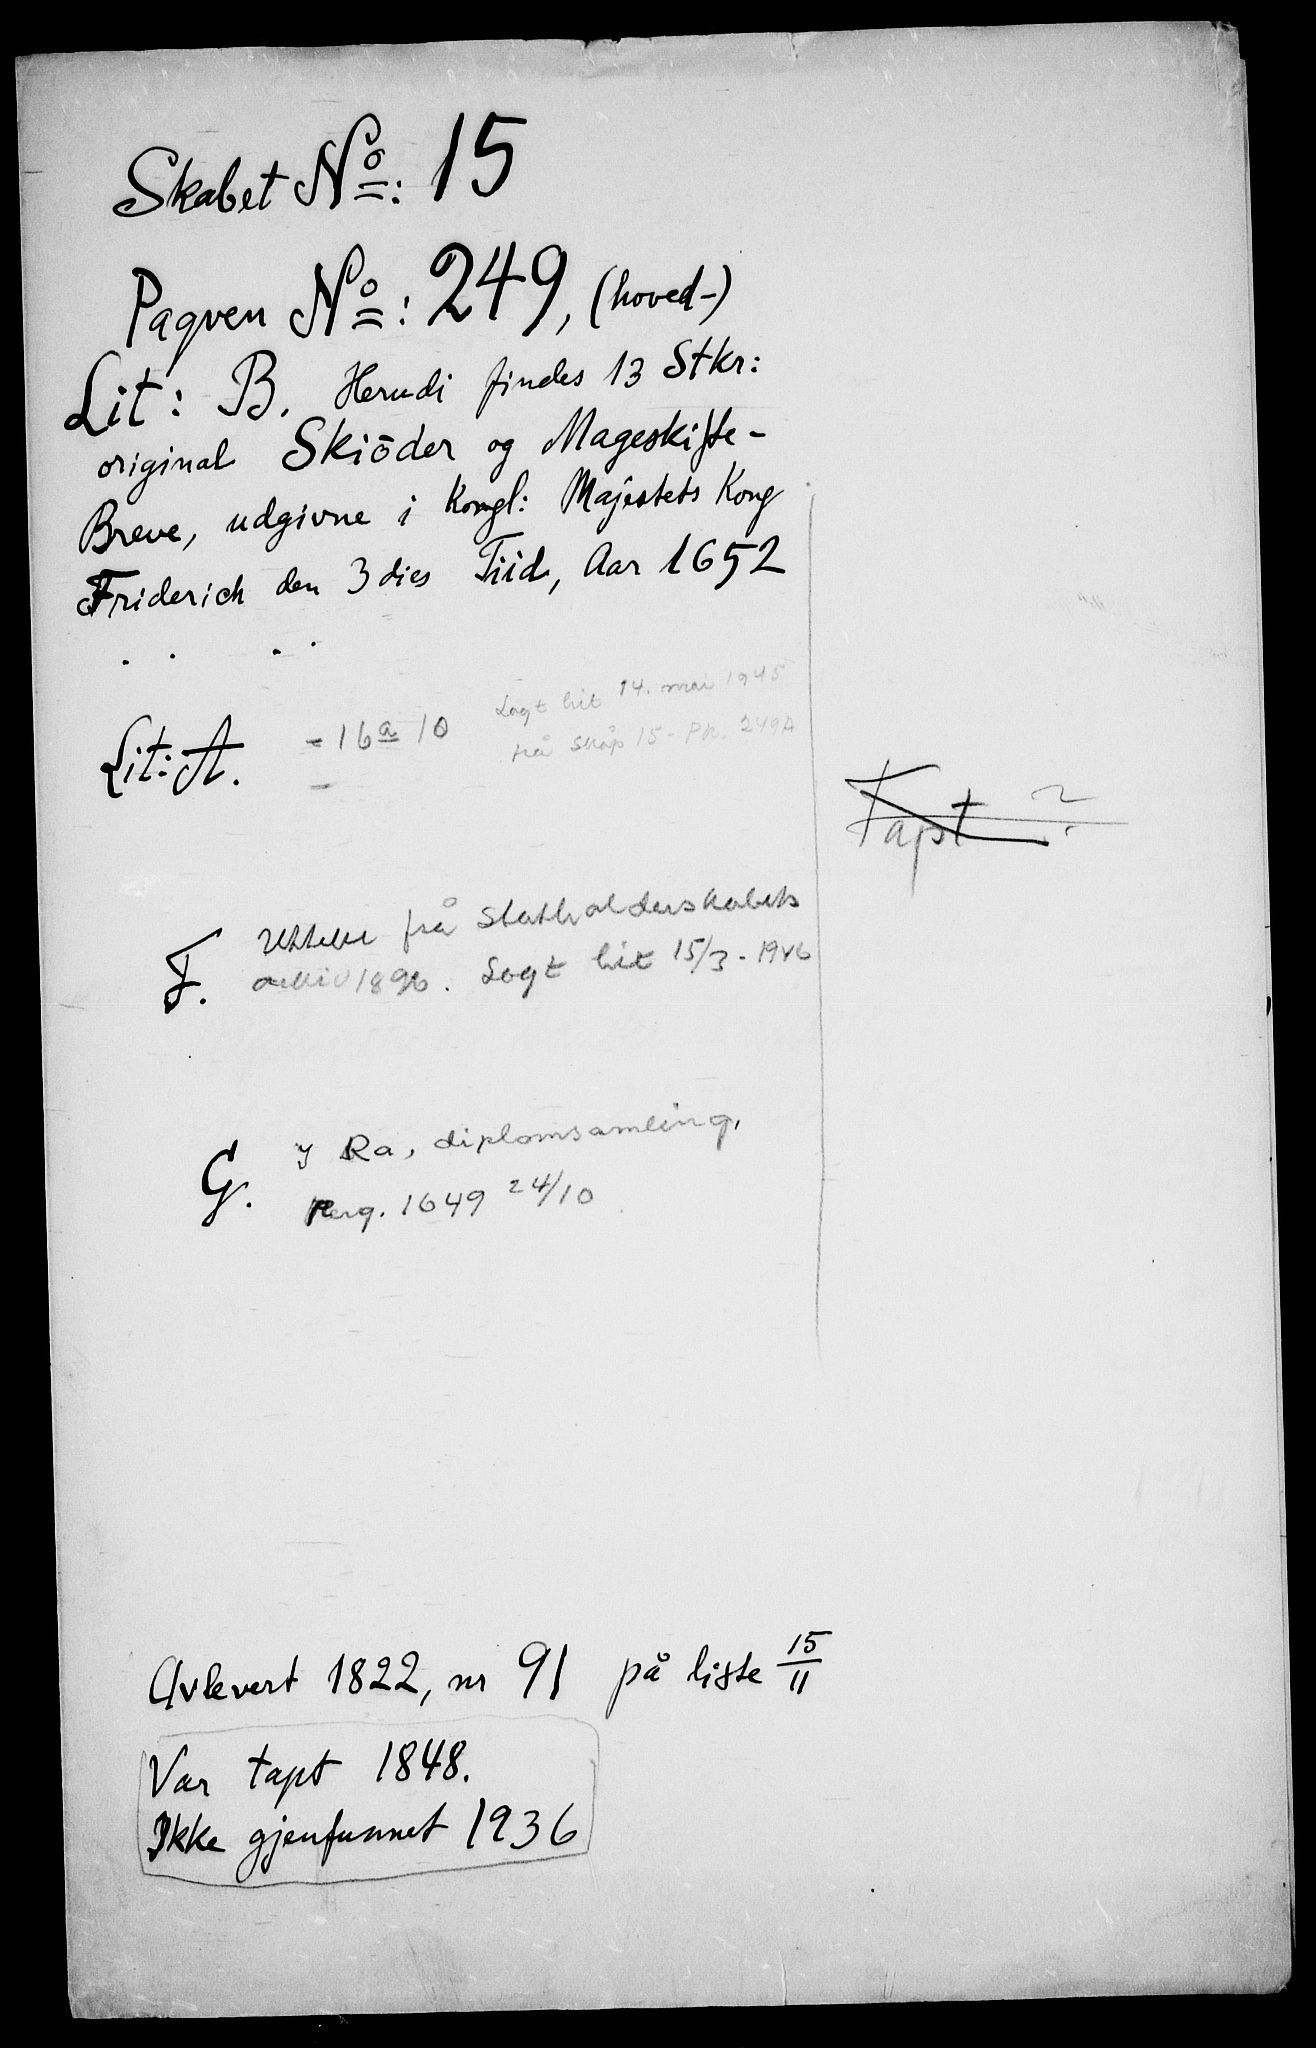 Skabet No: 15
Paqven No: 249, (hoved-)
Lit: B. Herudi findes 13 Stkr:
original Skiöder og Mageskifte-
Breve, udgivne i Kongl: Majestets Kong
Friderich den 3dies Tiid, Aar 1652
. . . .
Lit: A. = 16 a 10 Lagt hit 14. mai 1945
frå Skåp 15 - Pk. 249A
Tapt ?
F. frå Statholderskabets
arkiv 1896. Lagt hit 15/3 - 1946
G. I Ra, diplomsamling,
Perg. 1649 24/10
Avlevert 1822, nr 91 på liste 15/11
Var tapt 1848.
Ikke gjenfunnet 1936